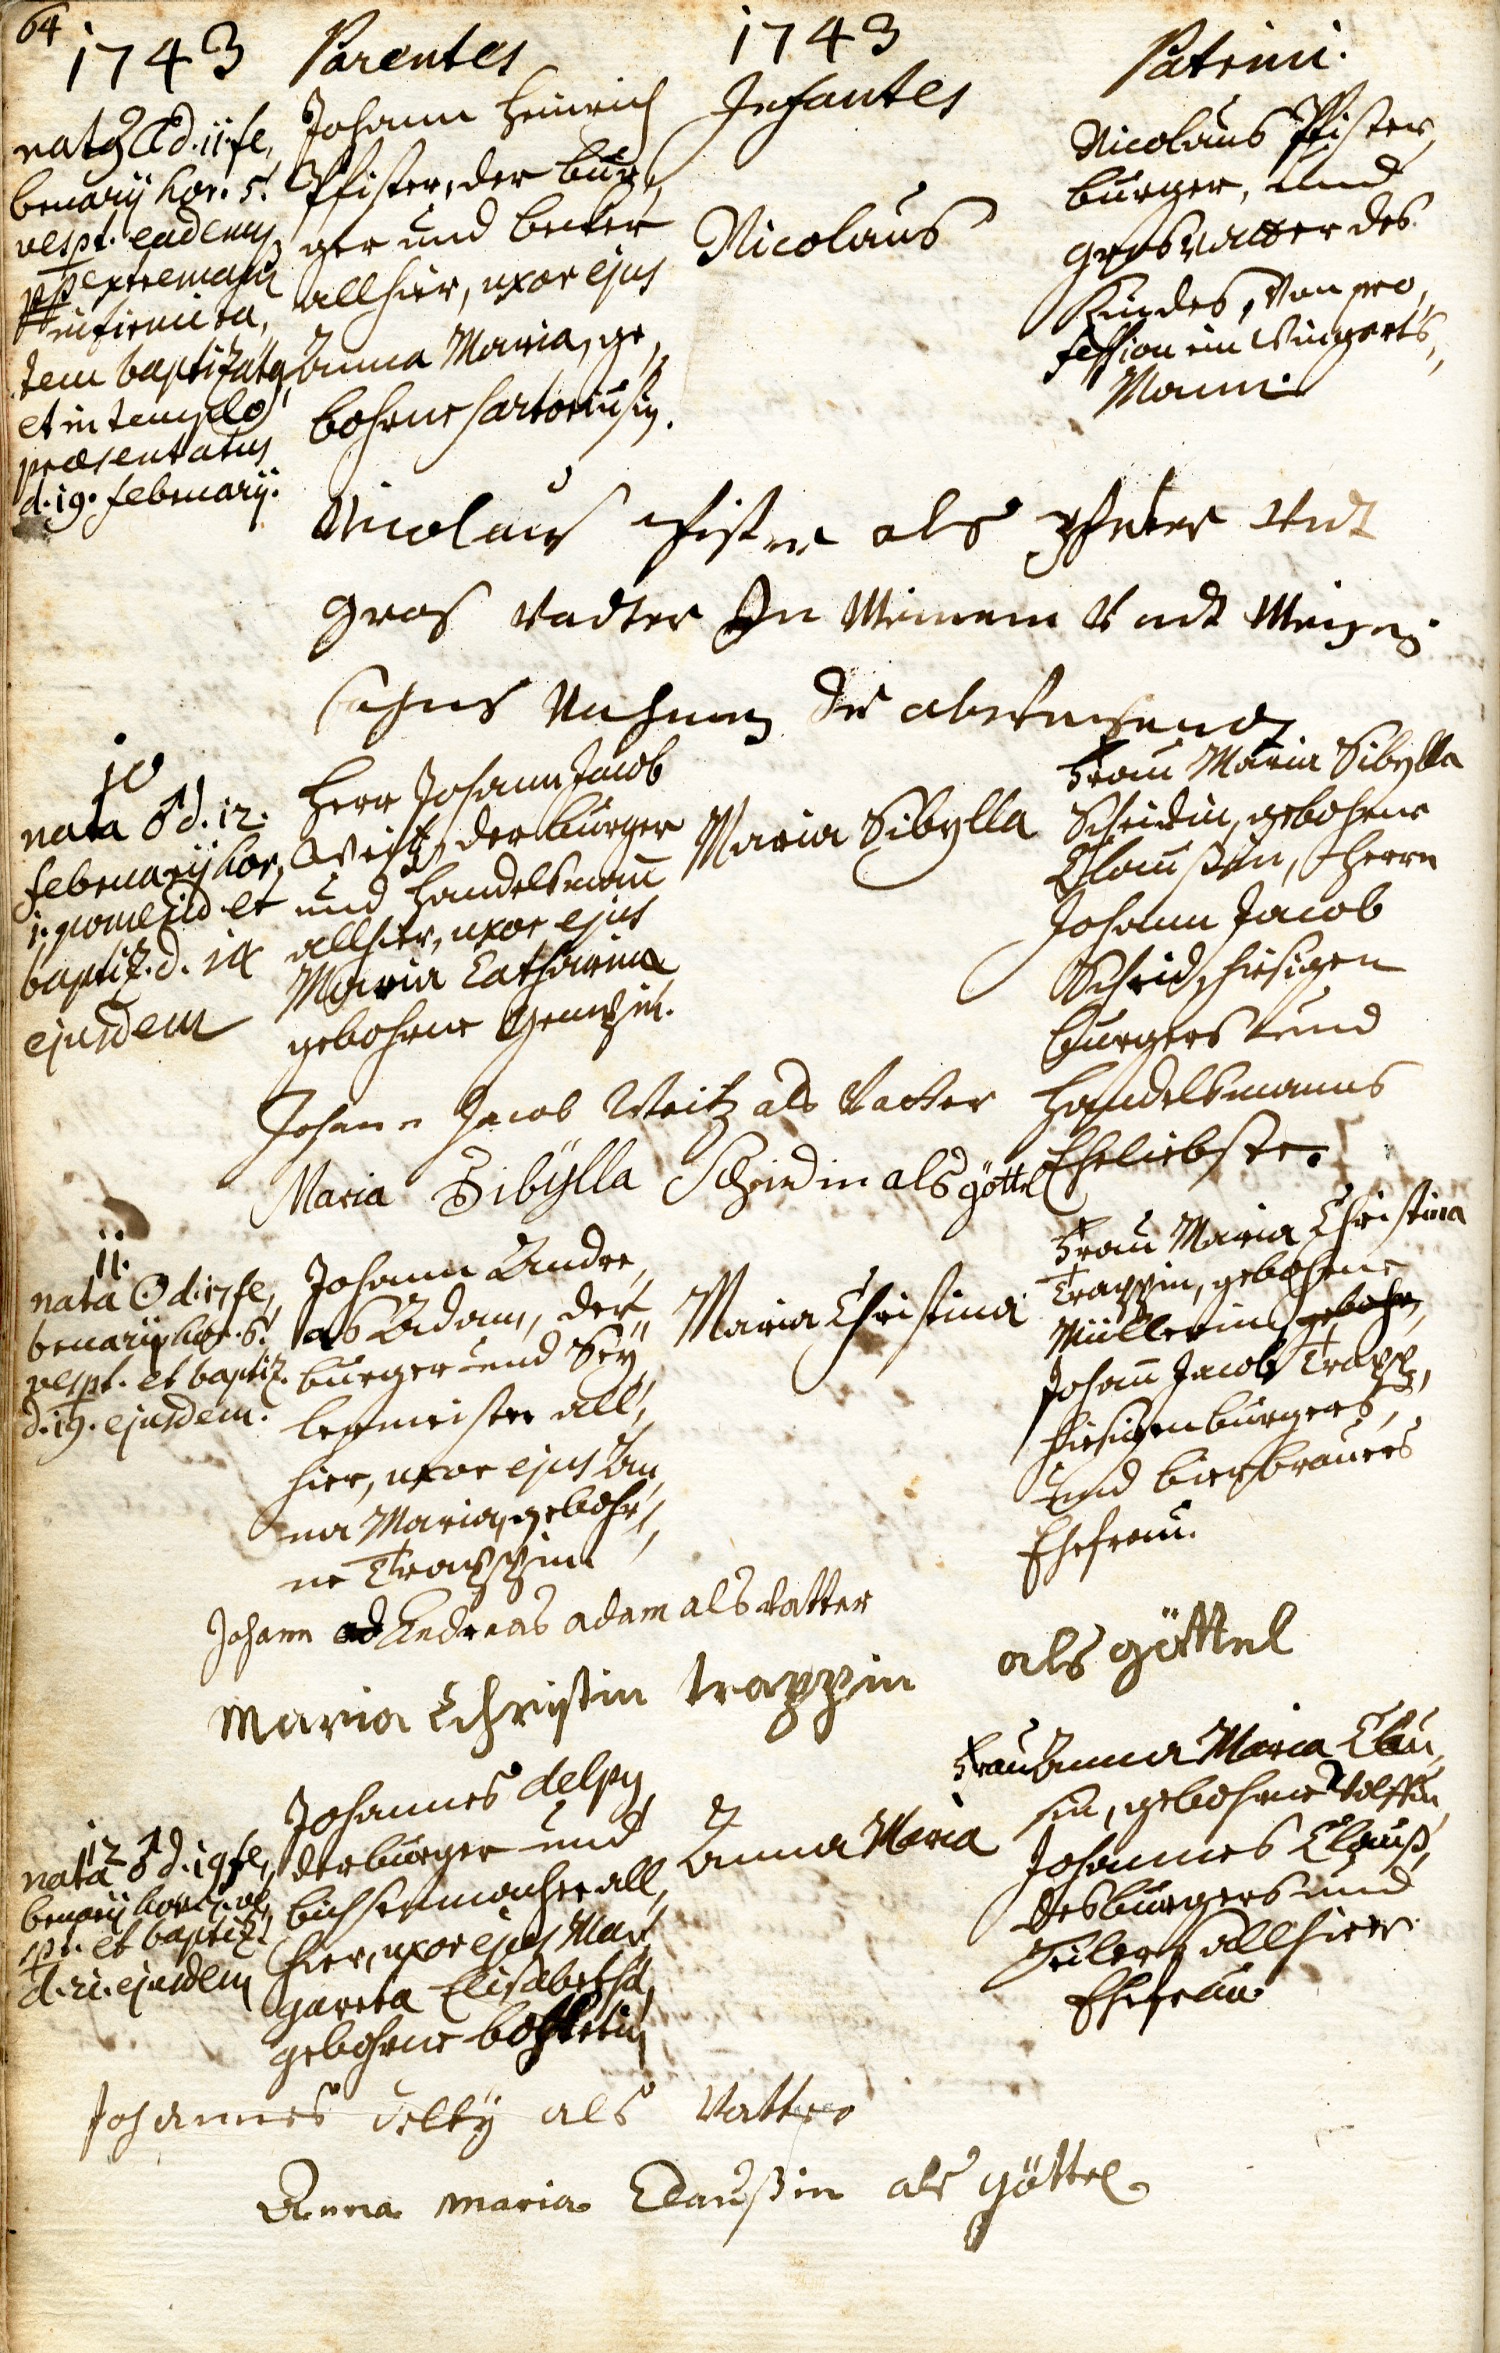 64
1743 Parentes 1743
Infantes Patrini.
natus d. 11. fe,
bruarij hor. 5.
vespt. eadem
extremam
infirmita,
tem baptizatus
et in templo
præsentatus
d. 19. februarij.
Johann Heinrich
Pfister, der bur,
ger und becker
allhier, uxor ejus
Anna Maria, ge,
bohrne Sartoriusin.
Nicolaus
Nicolaus Pfister,
burger, und
grosvatter des
Kindes, von pro,
fession ein Wingerts,
Mann.
Nicolaus Pfister als Pfetter undt
gros vadter In Meinem undt Meines
sohns Nahmen der abwesend
10
nata ♂ d. 12.
februarij hor.
1. pomerid et
baptiz. d. 14
ejusdem
Herr Johann Jacob
Weitz, der burger
und Handelsmann
allhier, uxor ejus
Maria Catharina
gebohrne
Maria Sibylla
Frau Maria Sibylla
Scheidin, gebohrne
Claussin, Herrn
Johann Jacob
Scheid, hiesigen
burgers und
Handelsmanns
Eheliebste.
Johann Jacob Weitz als Vatter
Maria Sibÿlla Scheidin als göttel
11.
nata ☉ d. 17 fe,
bruarij hor. 6.
vespt. et baptiz.
d. 19. ejusdem.
Johann Andre,
as Adam, der
burger und Sey,
lermeister all,
hier, uxor ejus An,
na Maria, gebohr,
ne Trappin
Maria Christina
Frau Maria Christina
Trappin, gebohrne
Müllerin gebohr,
Johann Jacob Trapp,
hiesigen burgers,
und bierbrauers
Ehefrau.
Johann ad Andreas adam als vatter
Maria Christin trappin als göttel
12
nata ♂ d. 19 fe,
bruarij hor. ve,
spt. et baptiz.
d. 21. ejusdem
Johannes Delpy,
der burger und
bichsenmacher all,
hier, uxor ejus Mar,
gareta Elisabetha,
gebohrne
Anna Maria
Frau Anna Maria Clau,
sin, gebohrne Wolffin,
Johannes Clauß,
des burgers und
Seilers allhier
Ehefrau
Johannes Delbÿ als Vatter
Anna maria Claußin als göttel